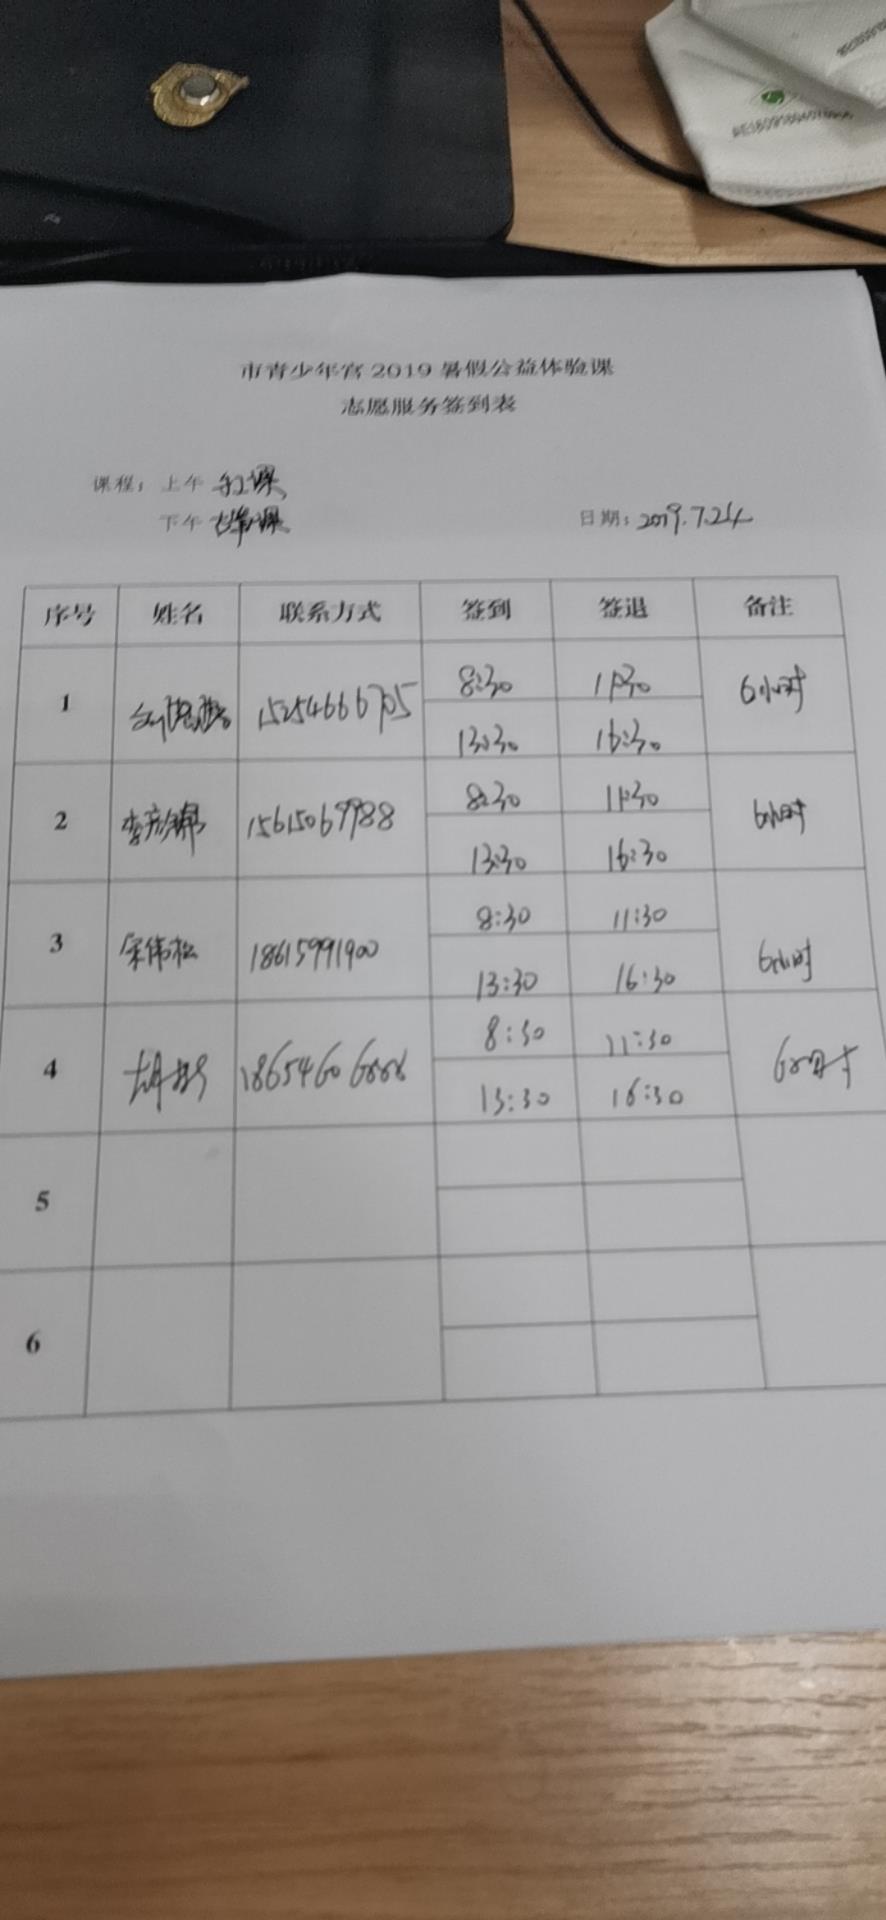 市青少年宫2019暑假公益体验课
志愿服务签到表
课程：上午 手工课
下午 古筝课 日期：2019.7.24
序号 姓名 联系方式 签到 签退 备注
1 15254666705 8:30 11:30 6小时
13:30 16:30
2 李彦锦 15615069988 8:30 11:30 6小时
13:30 16:30
3 宋伟松 18615991900 8:30 11:30 6小时
13:30 16:30
4 8:30 11:30 6小时
13:30 16:30
5
6